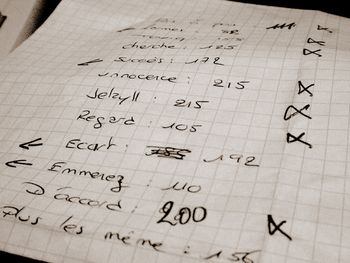 cherche : 125
succès : 172
innocence : 215
Jekyll : 215
Regard : 105
Ecart : 192
Emmenez : 110
D'accord : 200
plus les même : 156